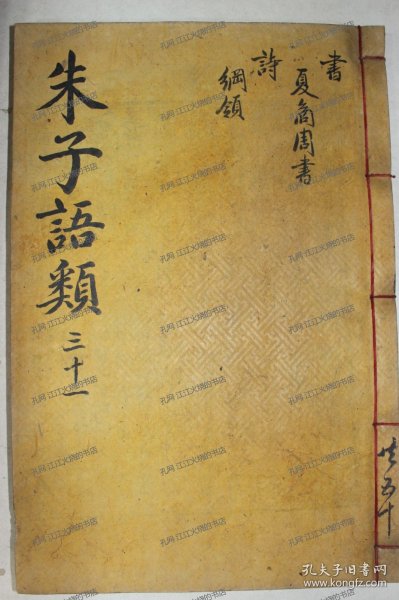 書
夏商周書
詩
綱領
朱子語類 三十一
共五十
孔网·江江火烧的书店
孔夫子旧书网
www.kongfz.com